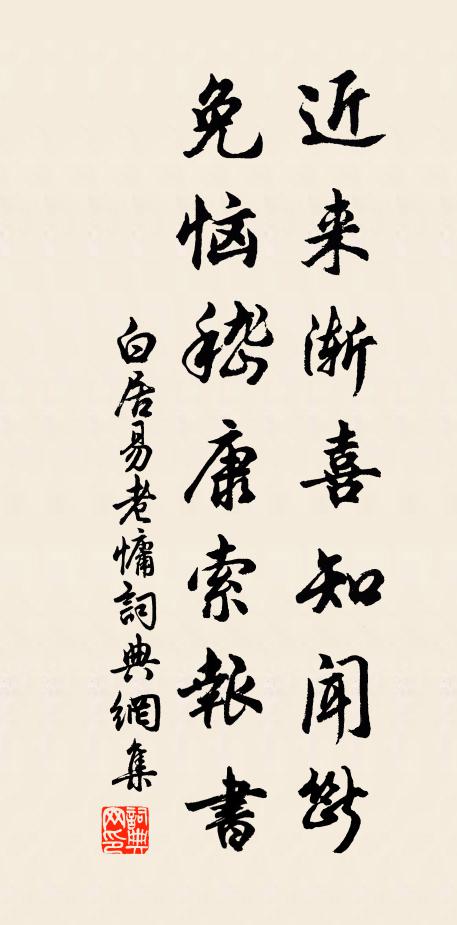 近来渐喜知闻断
免恼嵇康索报書
白居易老慵詞典網集
詞典网印